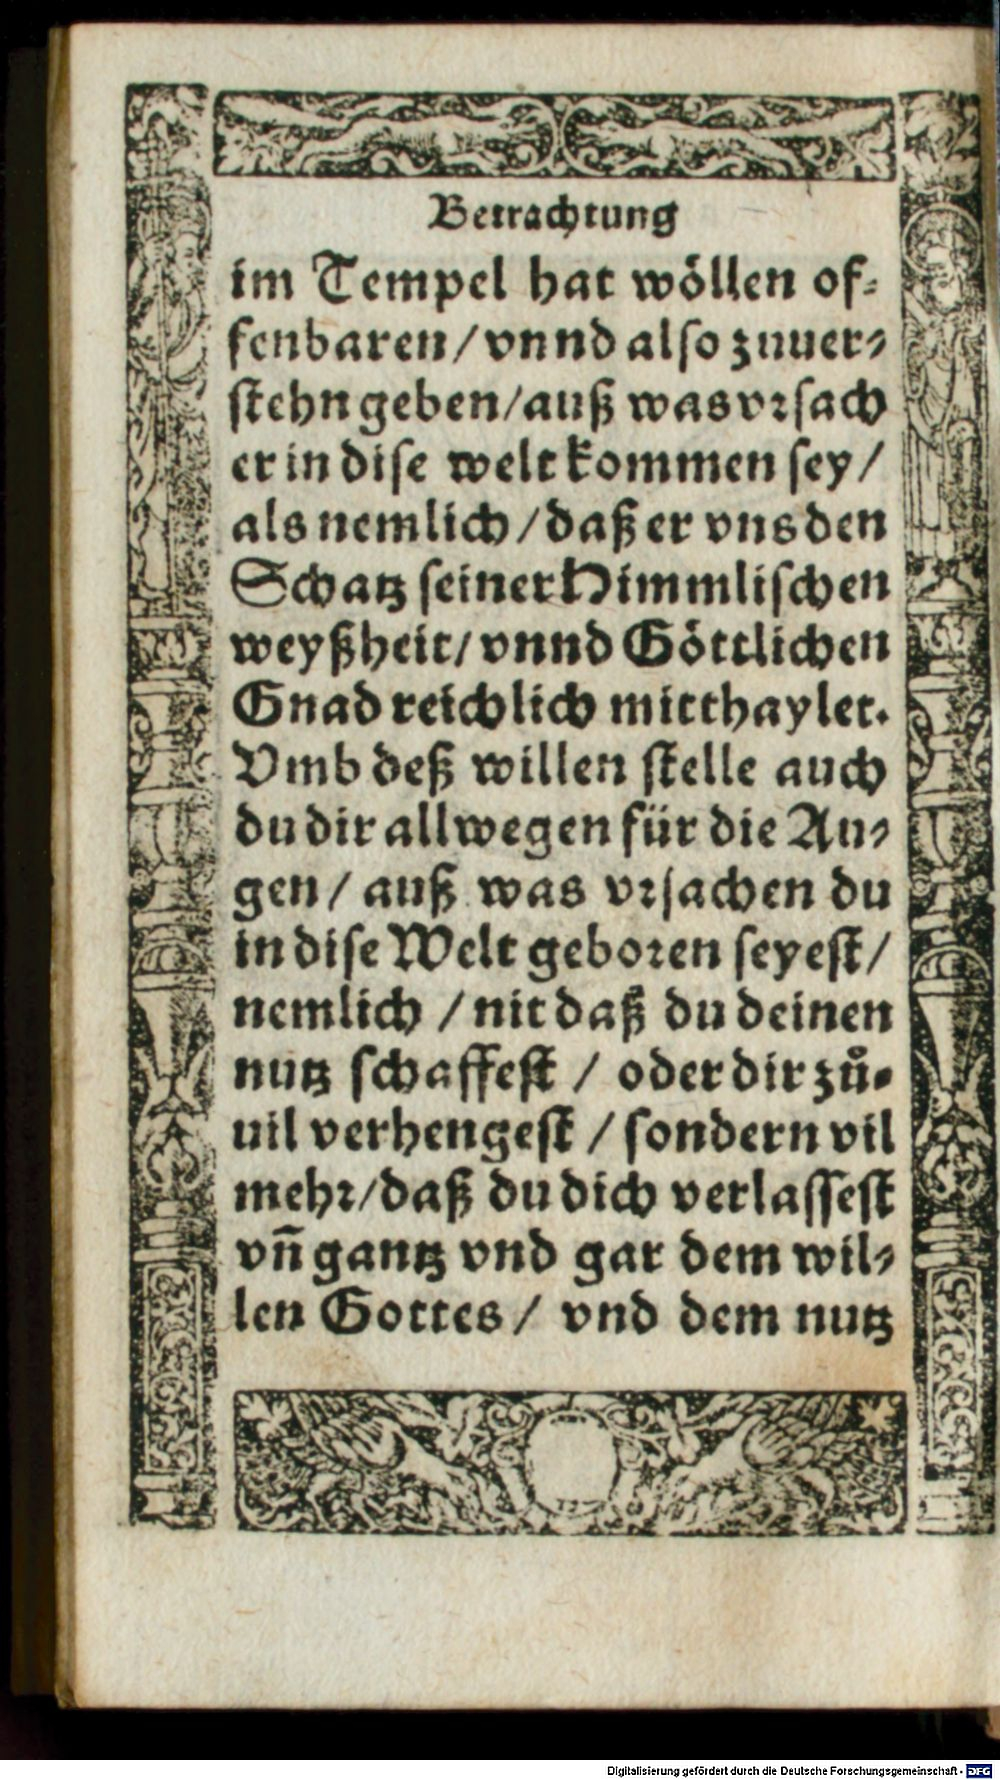 Betrachtung
im Tempel hat wöllen of⸗
fenbaren/ vnnd also zuuer⸗
stehn geben/ auß was vrsach
er in dise welt kommen sey/
als nemlich/ daß er vns den
Schatz seiner Himmlischen
weyßheit/ vnnd Göttlichen
Gnad reichlich mitthaylet.
Vmb deß willen stelle auch
du dir allwegen für die Au⸗
gen/ auß was vrsachen du
in dise Welt geboren seyest/
nemlich / nit daß du deinen
nutz schaffest / oder dir zů⸗
uil verhengest / sondern vil
mehr/ daß du dich verlassest
vn̄ gantz vnd gar dem wil⸗
len Gottes/ vnd dem nutz
Digitalisierung gefördert durch die Deutsche Forschungsgemeinschaft - DFG